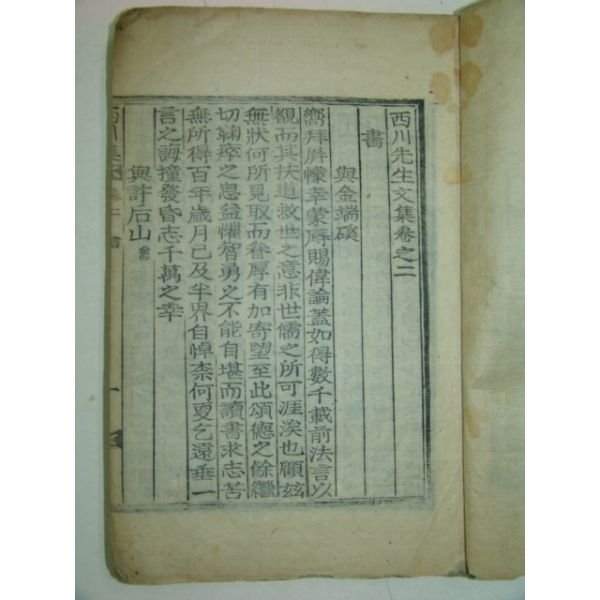 西川先生文集卷之二
書
與金端磎
嚮拜屛幪幸蒙辱賜偉論蓋如得數千載前法言以
覩而其扶道救世之意非世儒之所可涯涘也顧玆
無狀何所見取而眷厚有加寄望至此頌德之餘繼
切鞠瘁之思益懼智勇之不能自堪而讀書求志苦
無所得百年歲月已及半界自悼柰何更乞遠垂一
言之誨撞發昏志千萬之幸
與許后山
西川集 卷二 書 一